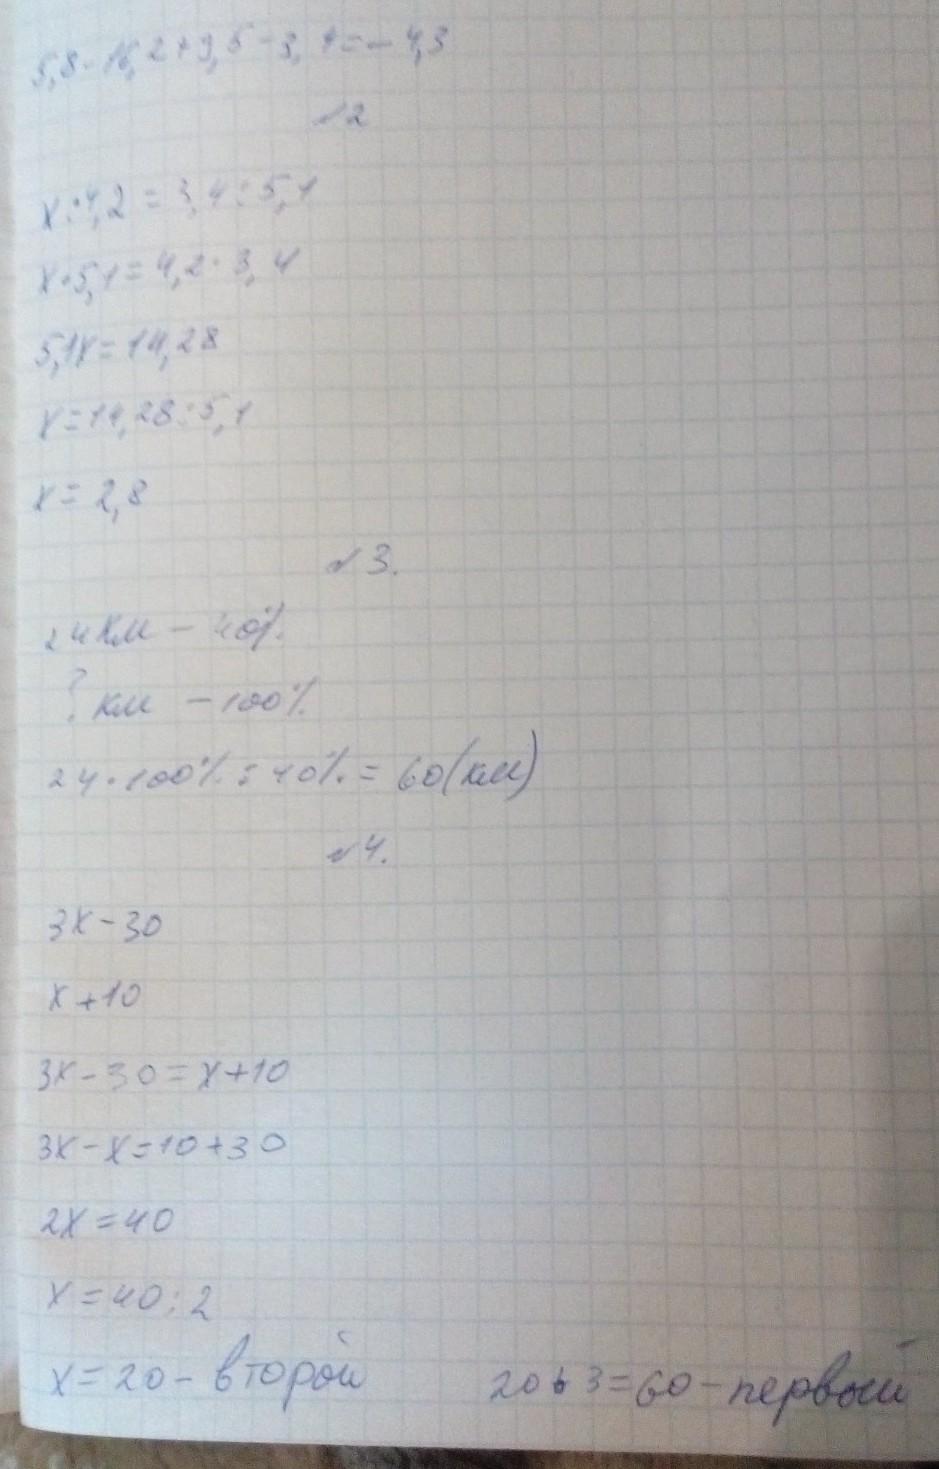 5,8-16,2+9,5-3,4=-4,3
№2
x:4,2=3,4:5,1
x·5,1=4,2·3,4
5,1x=14,28
x=14,28:5,1
x=2,8
№3.
24км - 40%
? км - 100%
24·100%:40%=60(км)
№4.
3x-30
x+10
3x-30=x+10
3x-x=10+30
2x=40
x=40:2
x=20-второй 20·3=60-первый